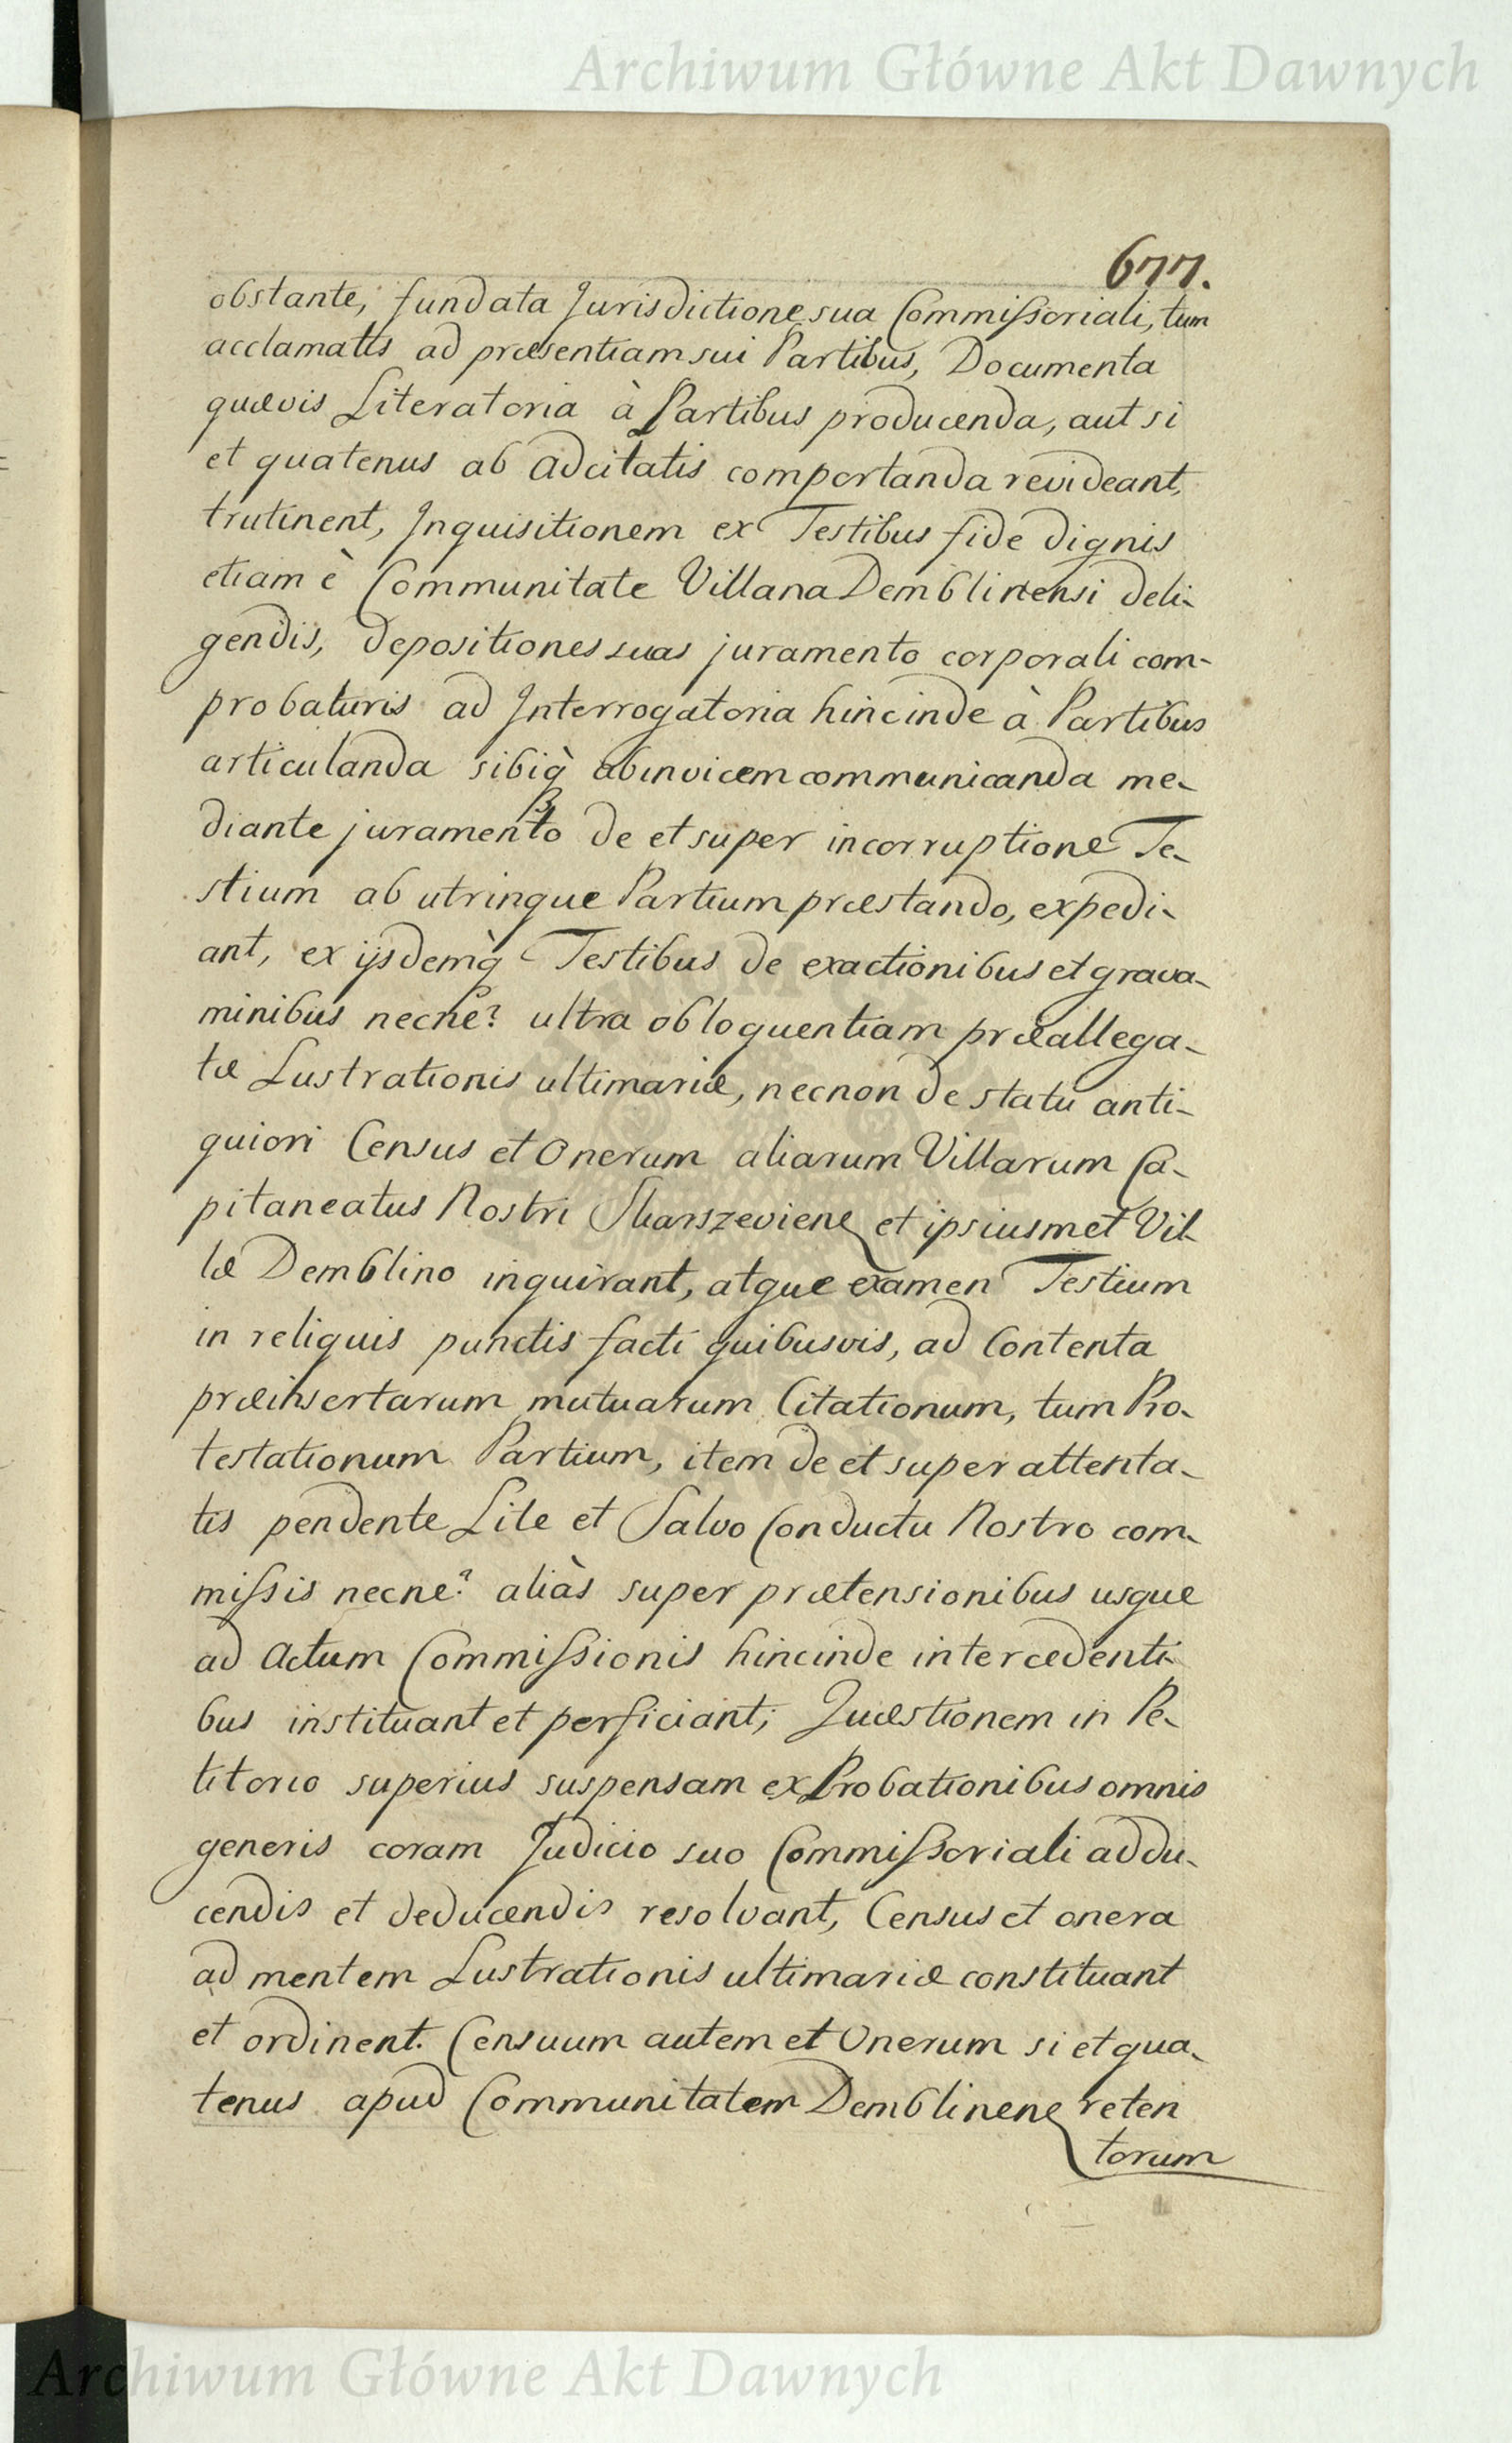 Archiwum Główne Akt Dawnych
677.
obstante, fundata Jurisdictione sua Commissoriali, tum
acclamatis ad præsentiam sui Partibus, Documenta
quævis Literatoria à Partibus producenda, aut si
et quatenus ab adcitatis comportanda revideant,
trutinent, Inquisitionem ex Testibus fide dignis
etiam è Communitate Villana Demblinensi deli-
gendis, depositiones suas juramento corporali com-
probaturis ad Interrogatoria hincinde à Partibus
articulanda sibiq̀ abinvicem communicanda me-
diante juramento de et super incorruptione Te-
stium ab utrinque Partium præstando, expedi-
ant, ex ijsdemq̀ Testibus de exactionibus et grava-
minibus necne? ultra obloquentiam præallega-
tæ Lustrationis ultimariæ, necnon de statu anti-
quiori Census et Onerum aliarum Villarum Ca-
pitaneatus Nostri Skarszeviens et ipsiusmet Vil-
læ Demblino inquirant, atque examen Testium
in reliquis punctis facti quibusvis, ad Contenta
præinsertarum mutuarum Citationum, tum Pro-
testationum Partium, item de et super attenta-
tis pendente Lite et Salvo Conductu Nostro com-
missis necne? aliàs super prætensionibus usque
ad Actum Commissionis hincinde intercedenti-
bus instituant et perficiant; Quæstionem in Pe-
titorio superius suspensam ex Probationibus omnis
generis coram Judicio suo Commissoriali addu-
cendis et deducendis resolvant, Census et onera
ad mentem Lustrationis ultimariæ constituant
et ordinent. Censuum autem et Onerum si et qua-
tenus apud Communitatem Demblinens reten
torum
Archiwum Główne Akt Dawnych